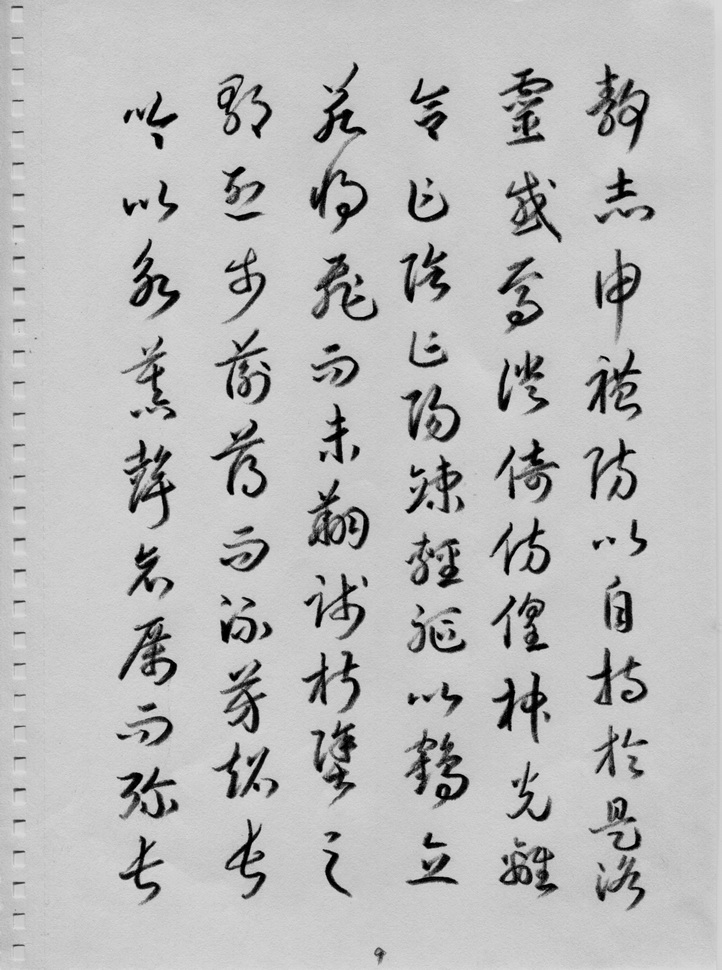 靜志申禮防以自持於是洛
靈感焉徙倚仿偟神光離
合乍陰乍陽竦輕軀以鶴立
若將飛而未翔踐椒塗之
郁烈步蘅薄而流芳超長
吟以永慕聲哀厲而彌長
9